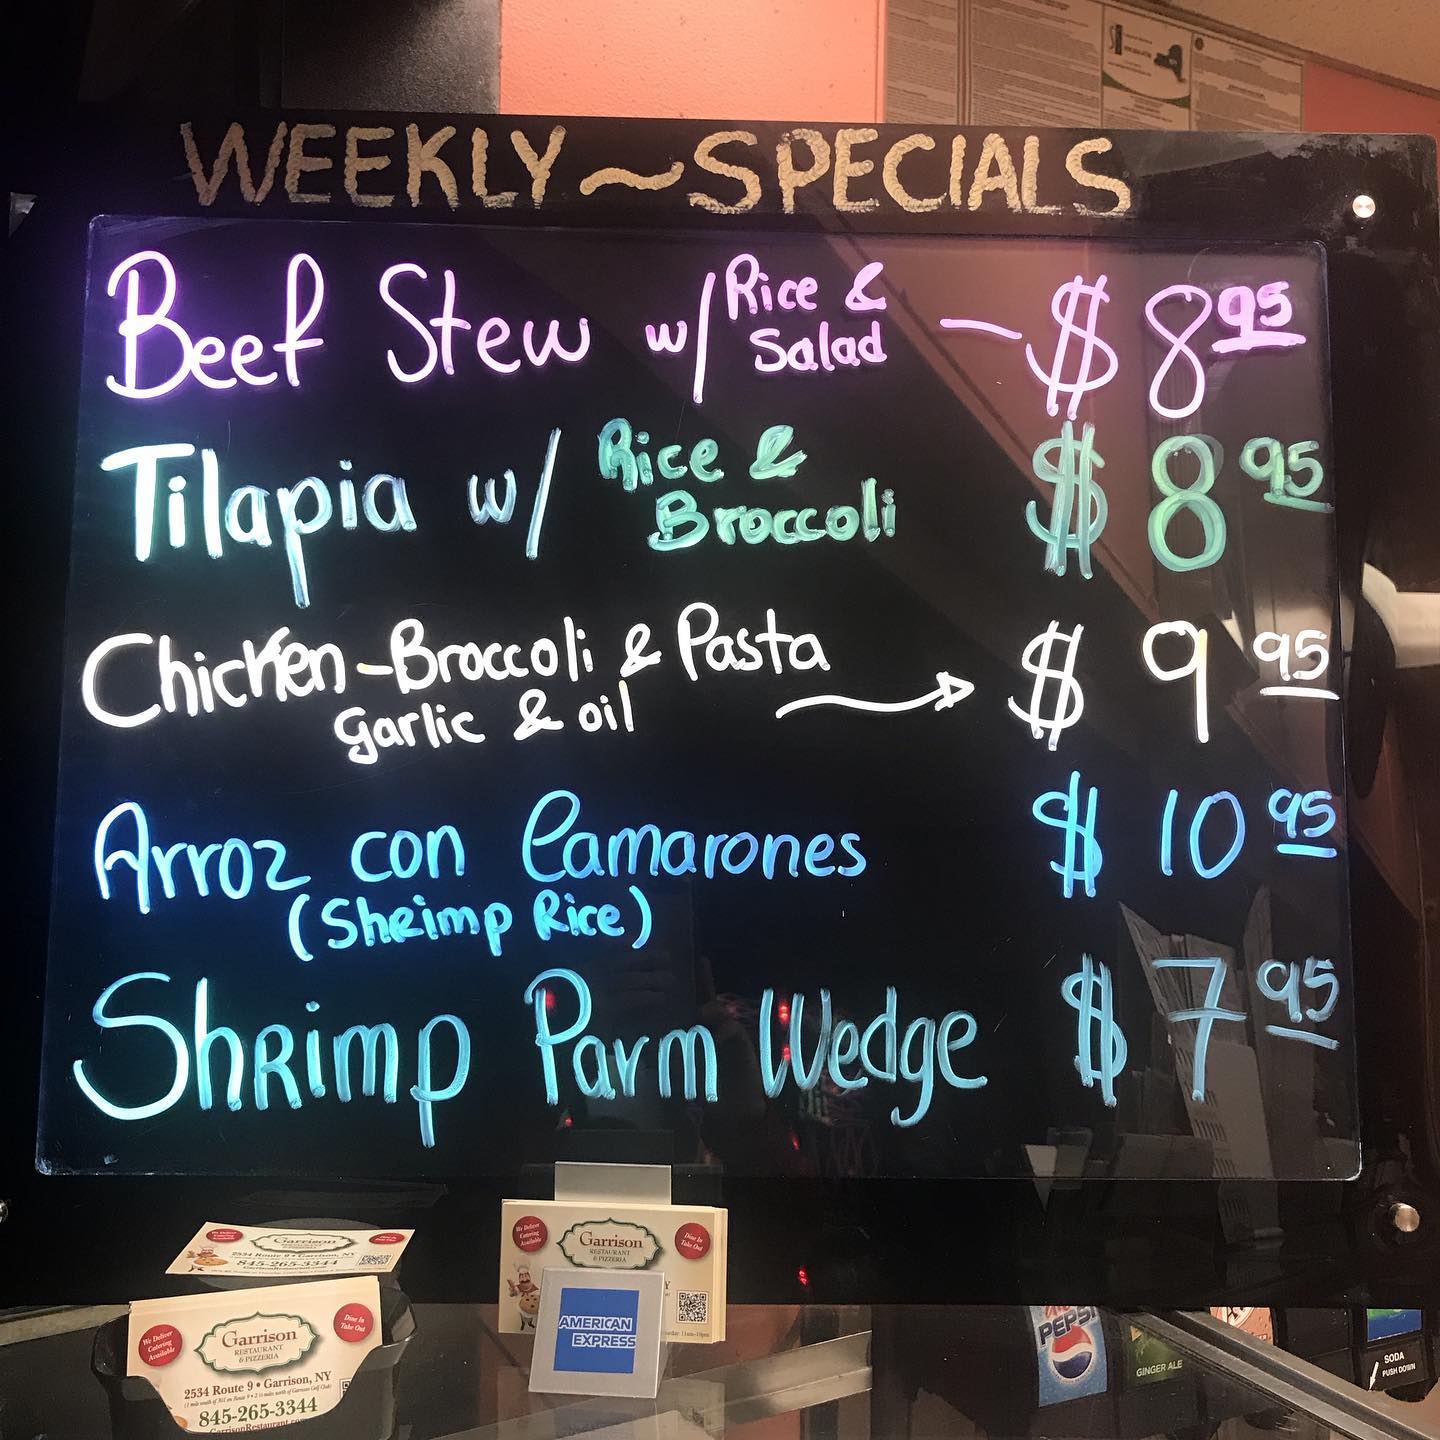 WEEKLY ~ SPECIALS
Beef Stew w/ Rice & Salad — $ 8 95
Tilapia w/ Rice & Broccoli $ 8 95
Chicken - Broccoli & Pasta → $ 9 95
garlic & oil
Arroz con Camarones $ 10 95
(Shrimp Rice)
Shrimp Parm Wedge $ 7 95
We Deliver
Catering
Available
Garrison
Dine In
Take Out
2534 Route 9 • Garrison, NY
845-265-3344
GarrisonRestaurant.com
We Deliver
Catering
Available
Garrison
RESTAURANT
& PIZZERIA
Dine In
Take Out
AMERICAN
EXPRESS
We Deliver
Catering
Available
Garrison
RESTAURANT
& PIZZERIA
Dine In
Take Out
2534 Route 9 • Garrison, NY
845-265-3344
GarrisonRestaurant.com
PEPSI
GINGER ALE
SODA
PUSH DOWN